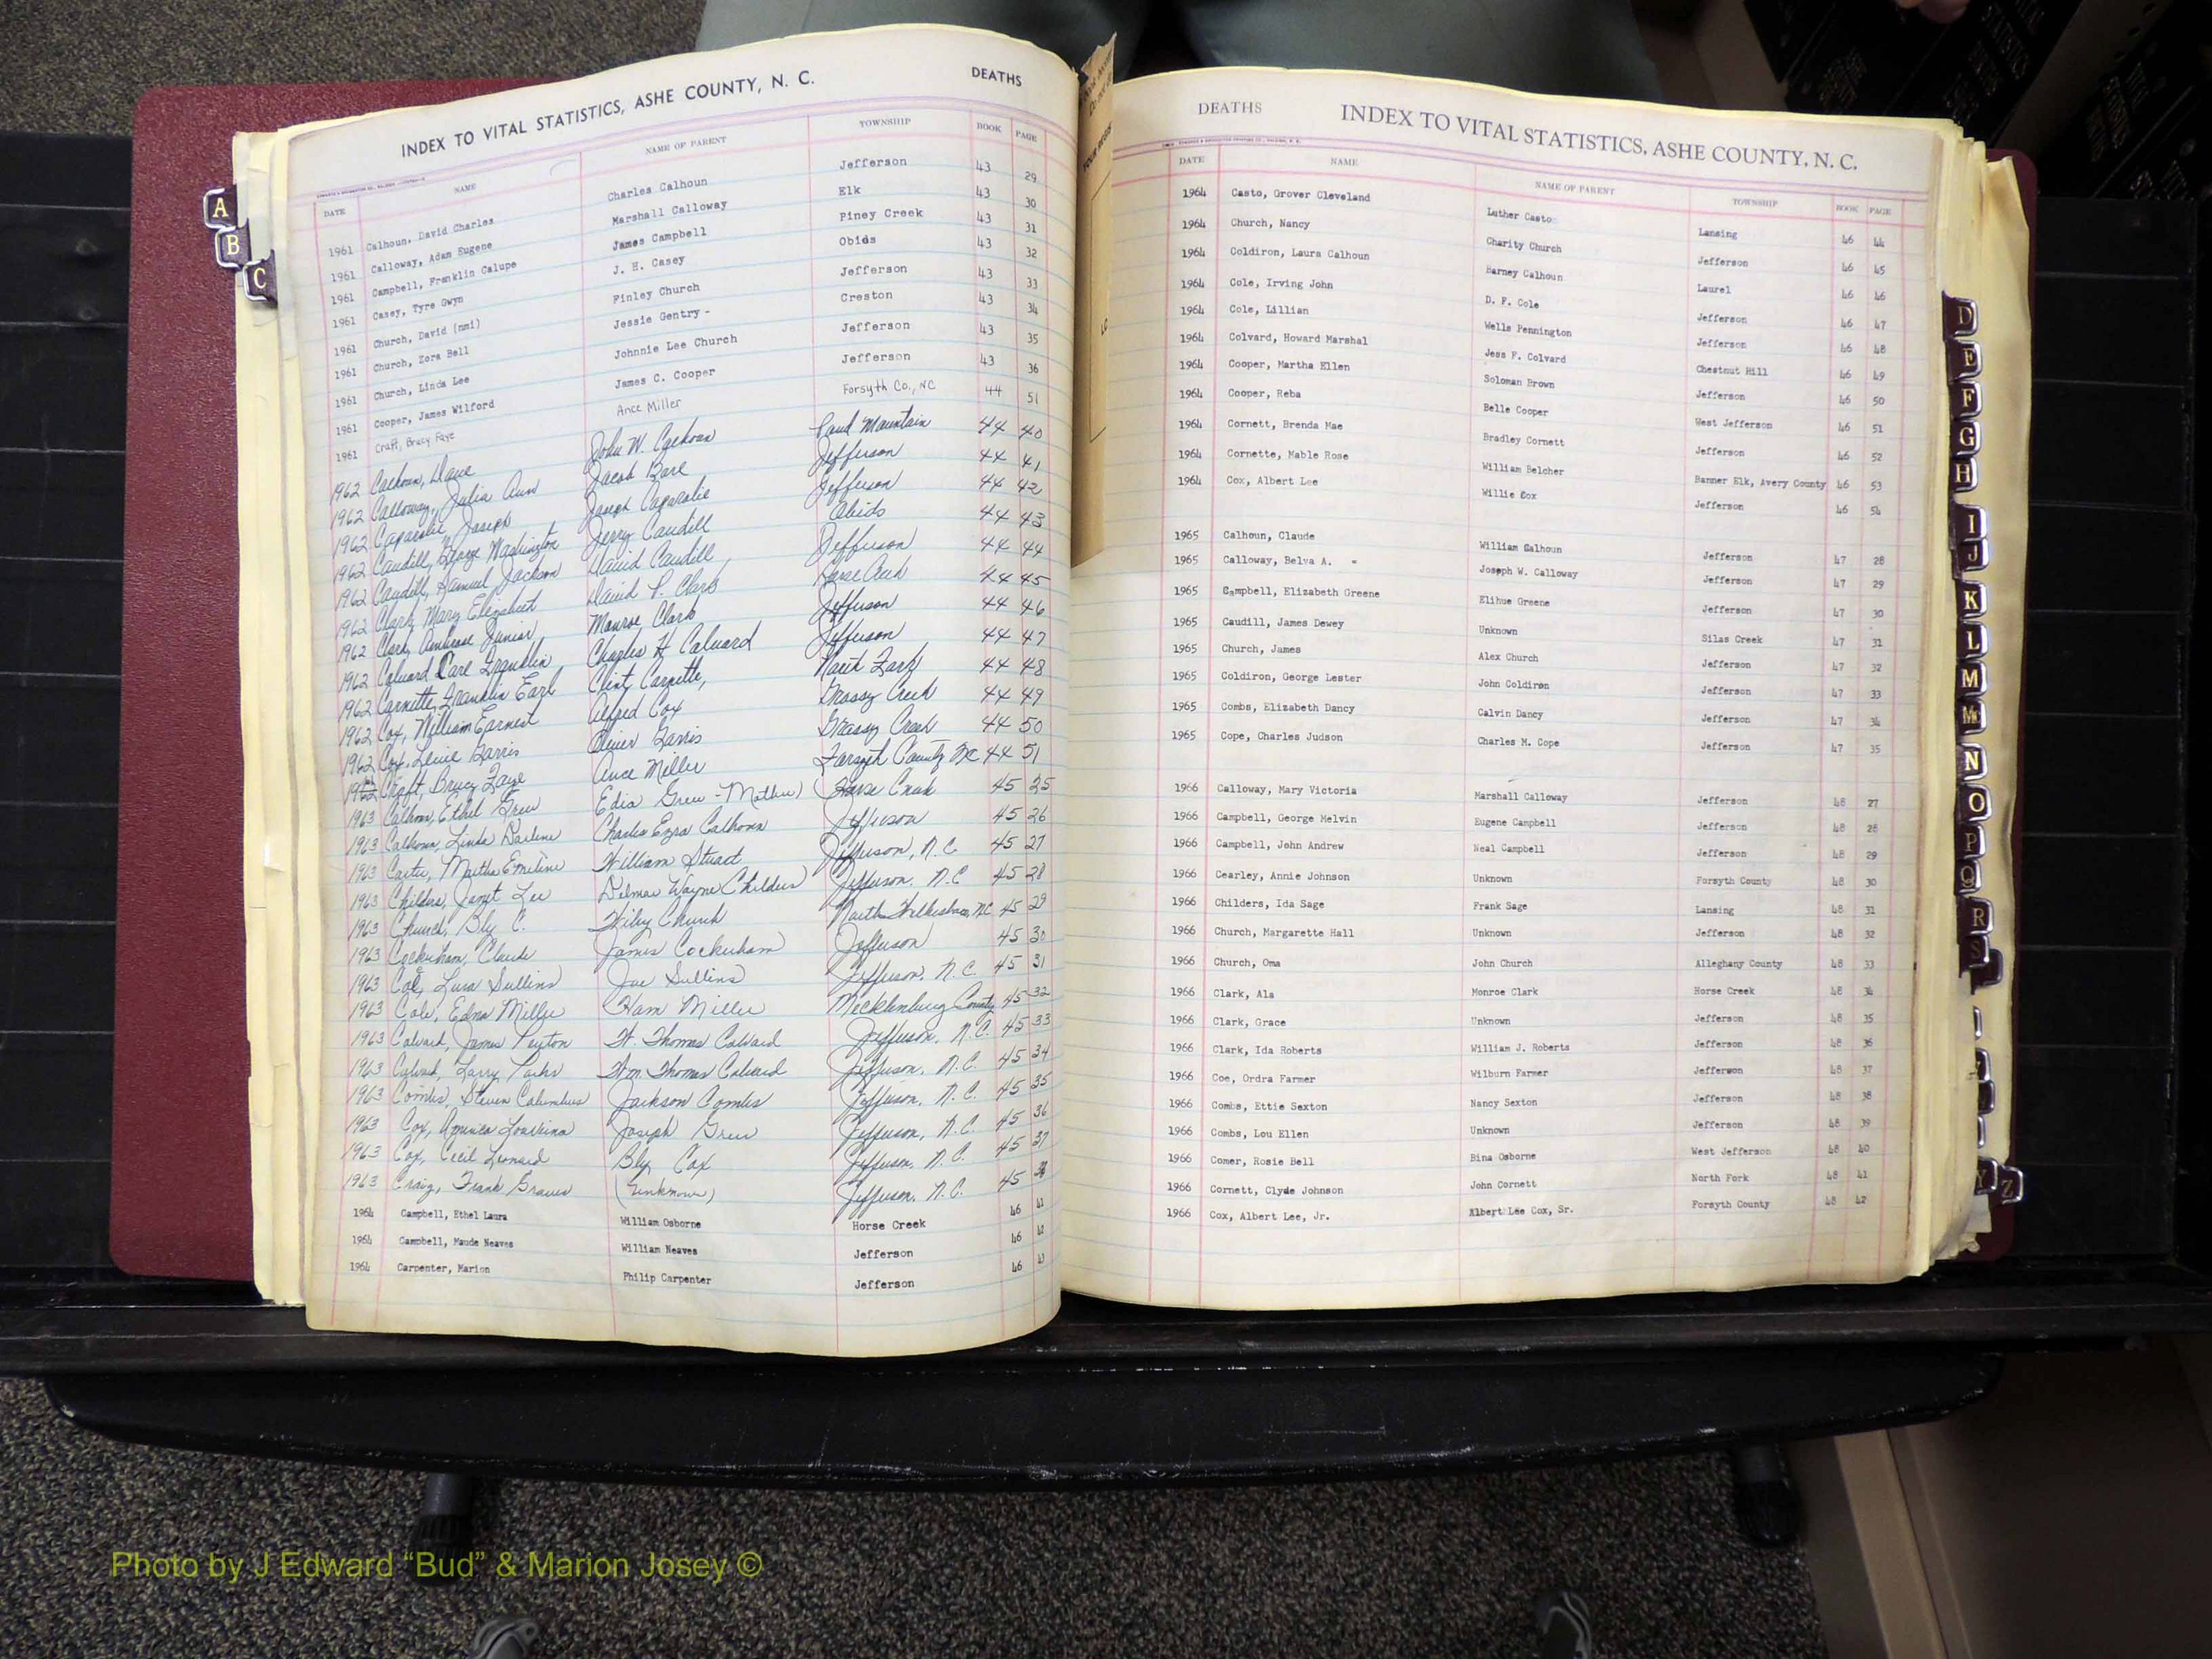 INDEX TO VITAL STATISTICS, ASHE COUNTY, N. C. DEATHS
DATE NAME NAME OF PARENT TOWNSHIP BOOK PAGE
1961 Calhoun, David Charles Charles Calhoun Jefferson 43 29
1961 Calloway, Adam Eugene Marshall Calloway Elk 43 30
1961 Campbell, Franklin Calupe James Campbell Piney Creek 43 31
1961 Casey, Tyre Gwyn J. H. Casey Obids 43 32
1961 Church, David (nmi) Finley Church Jefferson 43 33
1961 Church, Zora Bell Jessie Gentry - Creston 43 34
1961 Church, Linda Lee Johnnie Lee Church Jefferson 43 35
1961 Cooper, James Wilford James C. Cooper Jefferson 43 36
1961 Craft, Brucy Faye Ance Miller Forsyth Co., NC 44 51
1962 Calhoun, John W. Calhoun Pond Mountain 44 40
1962 Calloway, Julia Ann Jacob Bare Jefferson 44 41
1962 Joseph Joseph Jefferson 44 42
1962 Caudill, George Washington Jerry Caudill Obids 44 43
1962 Caudill, Samuel Jackson David Caudill Jefferson 44 44
1962 Clark, Mary Elizabeth David P. Clark Horse Creek 44 45
1962 Clark, Ambrose Junior Monroe Clark Jefferson 44 46
1962 Colvard, Franklin Charles H Colvard Jefferson 44 47
1962 Cornette, Franklin Earl Clint Cornette, North Fork 44 48
1962 Cox, William Earnest Alfred Cox Grassy Creek 44 49
1962 Cox, Farris Oliver Farris Grassy Creek 44 50
1962 Craft, Brucy Faye Ance Miller Forsyth County NC 44 51
1963 Calhoun, Ethel Greer Edia Greer - Mother) Horse Creek 45 25
1963 Calhoun, Linda Darlene Charles Ezra Calhoun Jefferson 45 26
1963 Carter, Martha Emeline William Stuart Jefferson, N.C 45 27
1963 Childers, Janet Lee Delmar Wayne Childers Jefferson, N.C 45 28
1963 Church, Bly C. Wiley Church North Wilkesboro, NC 45 29
1963 Cockerham, Claude James Cockerham Jefferson 45 30
1963 Cole, Lura Sullins Joe Sullins Jefferson, N.C. 45 31
1963 Cole, Edna Miller Ham Miller Mecklenburg County 45 32
1963 Colvard, James Peyton W. Thomas Colvard Jefferson, N.C. 45 33
1963 Colvard, Larry Parks Wm. Thomas Colvard Jefferson, N.C. 45 34
1963 Combs, Steven Columbus Jackson Combs Jefferson, N.C. 45 35
1963 Cox, Joseph Greer Jefferson, N.C. 45 36
1963 Cox, Cecil Leonard Bly Cox Jefferson, N.C. 45 37
1963 Craig, Frank Graves (Unknown) Jefferson, N.C. 45 38
1964 Campbell, Ethel Laura William Osborne Horse Creek 46 41
1964 Campbell, Maude Neaves William Neaves Jefferson 46 42
1964 Carpenter, Marion Philip Carpenter Jefferson 46 43
DEATHS INDEX TO VITAL STATISTICS, ASHE COUNTY, N. C.
DATE NAME NAME OF PARENT TOWNSHIP BOOK PAGE
1964 Casto, Grover Cleveland Luther Casto Lansing 46 44
1964 Church, Nancy Charity Church Jefferson 46 45
1964 Coldiron, Laura Calhoun Barney Calhoun Laurel 46 46
1964 Cole, Irving John D. F. Cole Jefferson 46 47
1964 Cole, Lillian Wells Pennington Jefferson 46 48
1964 Colvard, Howard Marshal Jess F. Colvard Chestnut Hill 46 49
1964 Cooper, Martha Ellen Soloman Brown Jefferson 46 50
1964 Cooper, Reba Belle Cooper West Jefferson 46 51
1964 Cornett, Brenda Mae Bradley Cornett Jefferson 46 52
1964 Cornette, Mable Rose William Belcher Banner Elk, Avery County 46 53
1964 Cox, Albert Lee Willie Cox Jefferson 46 54
1965 Calhoun, Claude William Calhoun Jefferson 47 28
1965 Calloway, Belva A. Joseph W. Calloway Jefferson 47 29
1965 Campbell, Elizabeth Greene Elihue Greene Jefferson 47 30
1965 Caudill, James Dewey Unknown Silas Creek 47 31
1965 Church, James Alex Church Jefferson 47 32
1965 Coldiron, George Lester John Coldiron Jefferson 47 33
1965 Combs, Elizabeth Dancy Calvin Dancy Jefferson 47 34
1965 Cope, Charles Judson Charles M. Cope Jefferson 47 35
1966 Calloway, Mary Victoria Marshall Calloway Jefferson 48 27
1966 Campbell, George Melvin Eugene Campbell Jefferson 48 28
1966 Campbell, John Andrew Neal Campbell Jefferson 48 29
1966 Cearley, Annie Johnson Unknown Forsyth County 48 30
1966 Childers, Ida Sage Frank Sage Lansing 48 31
1966 Church, Margarette Hall Unknown Jefferson 48 32
1966 Church, Oma John Church Alleghany County 48 33
1966 Clark, Ala Monroe Clark Horse Creek 48 34
1966 Clark, Grace Unknown Jefferson 48 35
1966 Clark, Ida Roberts William J. Roberts Jefferson 48 36
1966 Coe, Ordra Farmer Wilburn Farmer Jefferwon 48 37
1966 Combs, Ettie Sexton Nancy Sexton Jefferson 48 38
1966 Combs, Lou Ellen Unknown Jefferson 48 39
1966 Comer, Rosie Bell Bina Osborne West Jefferson 48 40
1966 Cornett, Clyde Johnson John Cornett North Fork 48 41
1966 Cox, Albert Lee, Jr. Albert Lee Cox, Sr. Forsyth County 48 42
A
B
C
D
E
F
G
H
I
J
K
L
M
Mc
N
O
P
Q
R
S
Y
Z
Photo by J Edward “Bud” & Marion Josey ©